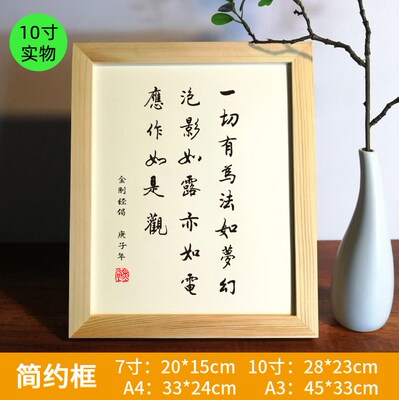 10寸
实物
一切有為法如夢幻
泡影如露亦如電
應作如是觀
金剛經偈 庚子年
简约框
7寸：20*15cm 10寸：28*23cm
A4：33*24cm A3：45*33cm